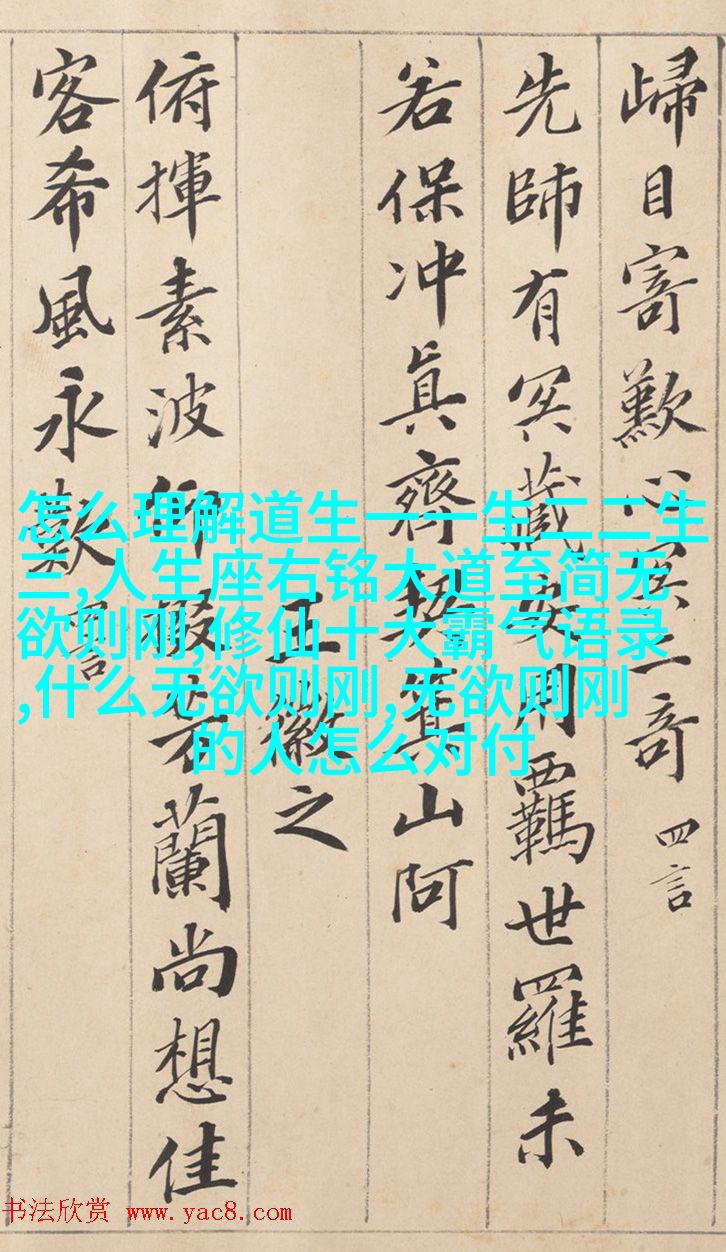 歸目寄歎心冥二奇 四言
先師有冥藏安用羈世羅未
若保冲真齊契箕山阿
王徽之
俯揮素波仰掇芳蘭尚想佳
客希風永歎 言
怎么理解道生一一生二二生
三,人生座右铭大道至简无
欲则刚,修仙十大霸气语录
,什么无欲则刚,无欲则刚
的人怎么对付
书法欣赏 www.yac8.com